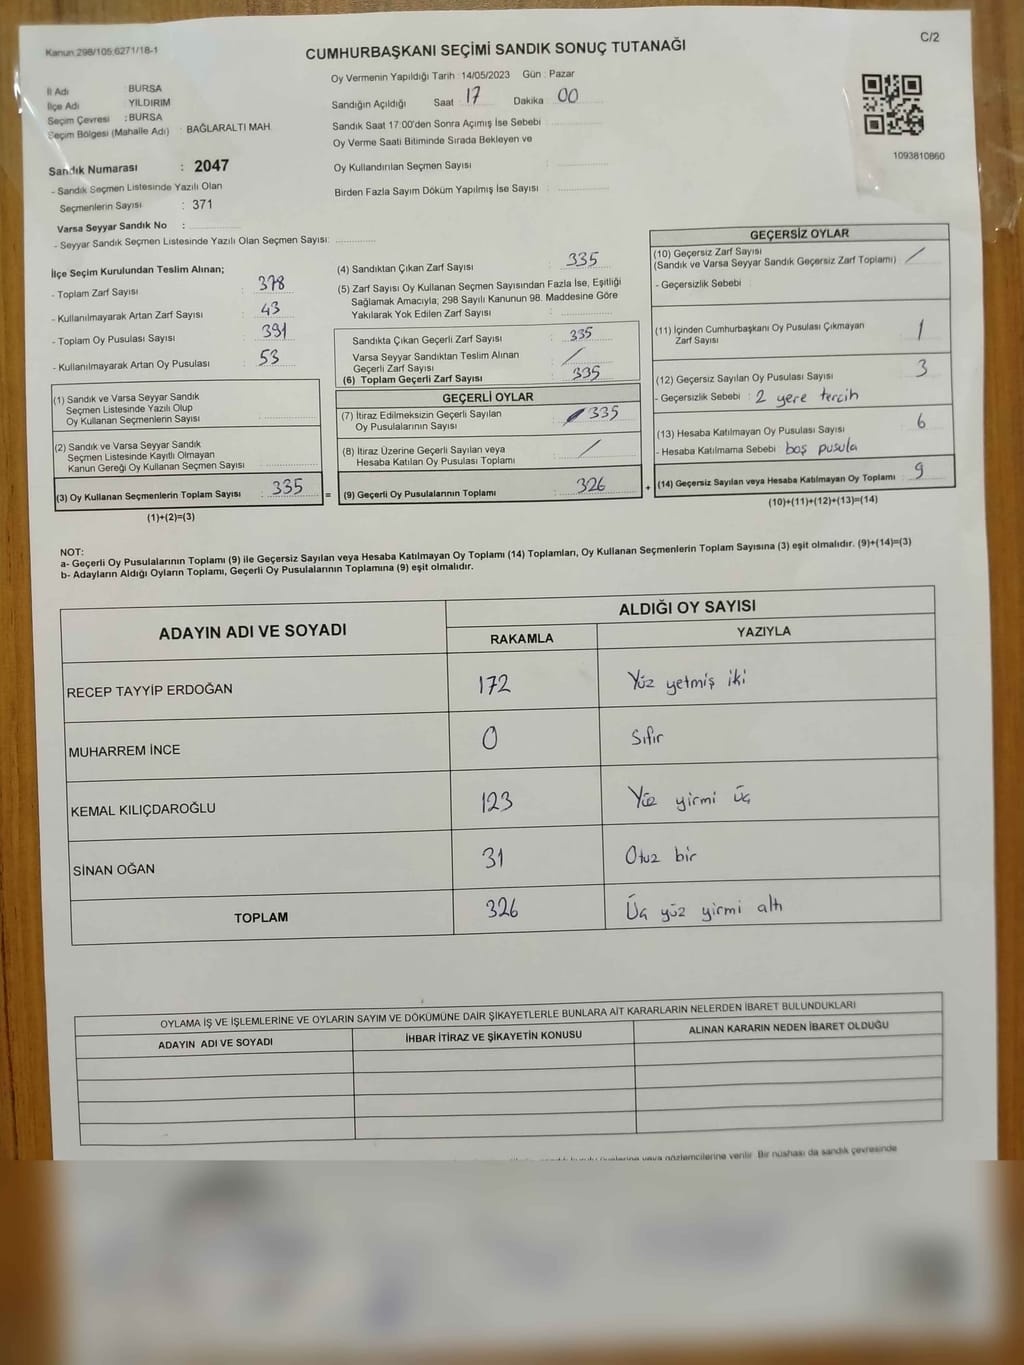 Kanun 298/105 6271/18-1
C/2
CUMHURBAŞKANI SEÇİMİ SANDIK SONUÇ TUTANAĞI
Oy Vermenin Yapıldığı Tarih : 14/05/2023 Gün : Pazar
İl Adı : BURSA
İlçe Adı YILDIRIM
Seçim Çevresi : BURSA
Seçim Bölgesi (Mahalle Adı) : BAĞLARALTI MAH.
Sandık Numarası : 2047
- Sandık Seçmen Listesinde Yazılı Olan
Seçmenlerin Sayısı : 371
Varsa Seyyar Sandık No :
- Seyyar Sandık Seçmen Listesinde Yazılı Olan Seçmen Sayısı:
Sandığın Açıldığı Saat 17 Dakika 00
Sandık Saat 17:00'den Sonra Açımış İse Sebebi :
Oy Verme Saati Bitiminde Sırada Bekleyen ve
Oy Kullandırılan Seçmen Sayısı :
Birden Fazla Sayım Döküm Yapılmış İse Sayısı :
1093810860
İlçe Seçim Kurulundan Teslim Alınan;
- Toplam Zarf Sayısı : 378
- Kullanılmayarak Artan Zarf Sayısı : 43
- Toplam Oy Pusulası Sayısı : 391
- Kullanılmayarak Artan Oy Pusulası : 53
(1) Sandık ve Varsa Seyyar Sandık
Seçmen Listesinde Yazılı Olup
Oy Kullanan Seçmenlerin Sayısı :
(2) Sandık ve Varsa Seyyar Sandık
Seçmen Listesinde Kayıtlı Olmayan
Kanun Gereği Oy Kullanan Seçmen Sayısı :
(3) Oy Kullanan Seçmenlerin Toplam Sayısı : 335
(1)+(2)=(3)
=
(4) Sandıktan Çıkan Zarf Sayısı : 335
(5) Zarf Sayısı Oy Kullanan Seçmen Sayısından Fazla İse, Eşitliği
Sağlamak Amacıyla; 298 Sayılı Kanunun 98. Maddesine Göre
Yakılarak Yok Edilen Zarf Sayısı :
Sandıkta Çıkan Geçerli Zarf Sayısı : 335
Varsa Seyyar Sandıktan Teslim Alınan
Geçerli Zarf Sayısı : /
(6) Toplam Geçerli Zarf Sayısı : 335
GEÇERLİ OYLAR
(7) İtiraz Edilmeksizin Geçerli Sayılan
Oy Pusulalarının Sayısı : 335
(8) İtiraz Üzerine Geçerli Sayılan veya
Hesaba Katılan Oy Pusulası Toplamı : /
(9) Geçerli Oy Pusulalarının Toplamı : 326
+
GEÇERSİZ OYLAR
(10) Geçersiz Zarf Sayısı
(Sandık ve Varsa Seyyar Sandık Geçersiz Zarf Toplamı) : /
- Geçersizlik Sebebi :
(11) İçinden Cumhurbaşkanı Oy Pusulası Çıkmayan
Zarf Sayısı : 1
(12) Geçersiz Sayılan Oy Pusulası Sayısı : 3
- Geçersizlik Sebebi : 2 yere tercih
(13) Hesaba Katılmayan Oy Pusulası Sayısı : 6
- Hesaba Katılmama Sebebi : boş pusula
(14) Geçersiz Sayılan veya Hesaba Katılmayan Oy Toplamı : 9
(10)+(11)+(12)+(13)=(14)
NOT:
a- Geçerli Oy Pusulalarının Toplamı (9) ile Geçersiz Sayılan veya Hesaba Katılmayan Oy Toplamı (14) Toplamları, Oy Kullanan Seçmenlerin Toplam Sayısına (3) eşit olmalıdır. (9)+(14)=(3)
b- Adayların Aldığı Oyların Toplamı, Geçerli Oy Pusulalarının Toplamına (9) eşit olmalıdır.
ADAYIN ADI VE SOYADI
ALDIĞI OY SAYISI
RAKAMLA YAZIYLA
RECEP TAYYİP ERDOĞAN 172 Yüz yetmiş iki
MUHARREM İNCE 0 Sıfır
KEMAL KILIÇDAROĞLU 123 Yüz yirmi üç
SİNAN OĞAN 31 Otuz bir
TOPLAM 326 Üç yüz yirmi altı
OYLAMA İŞ VE İŞLEMLERİNE VE OYLARIN SAYIM VE DÖKÜMÜNE DAİR ŞİKAYETLERLE BUNLARA AİT KARARLARIN NELERDEN İBARET BULUNDUKLARI
ADAYIN ADI VE SOYADI İHBAR İTİRAZ VE ŞİKAYETİN KONUSU ALINAN KARARIN NEDEN İBARET OLDUĞU
veya gözlemcilerine verilir. Bir nüshası da sandık çevresinde